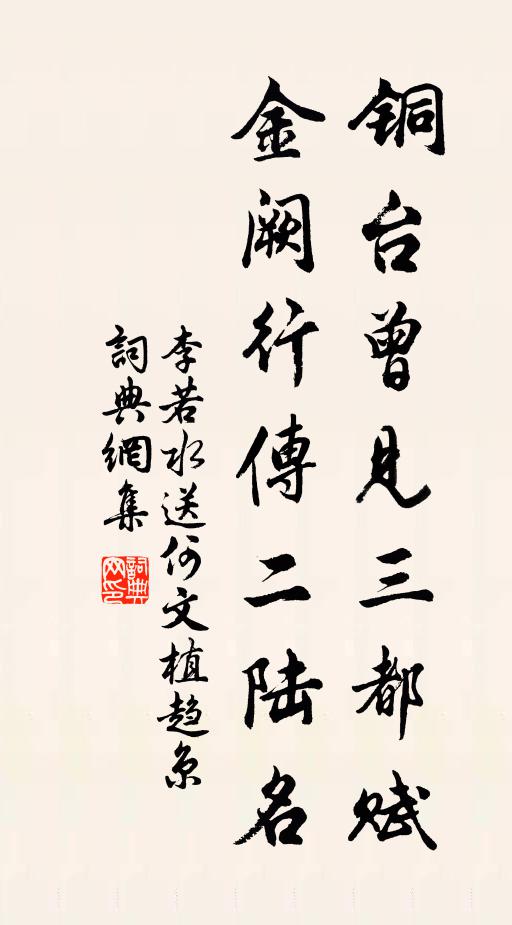 铜台曾见三都赋
金阙行傳二陆名
李若水送何文植趋京
詞典網集
詞典网印